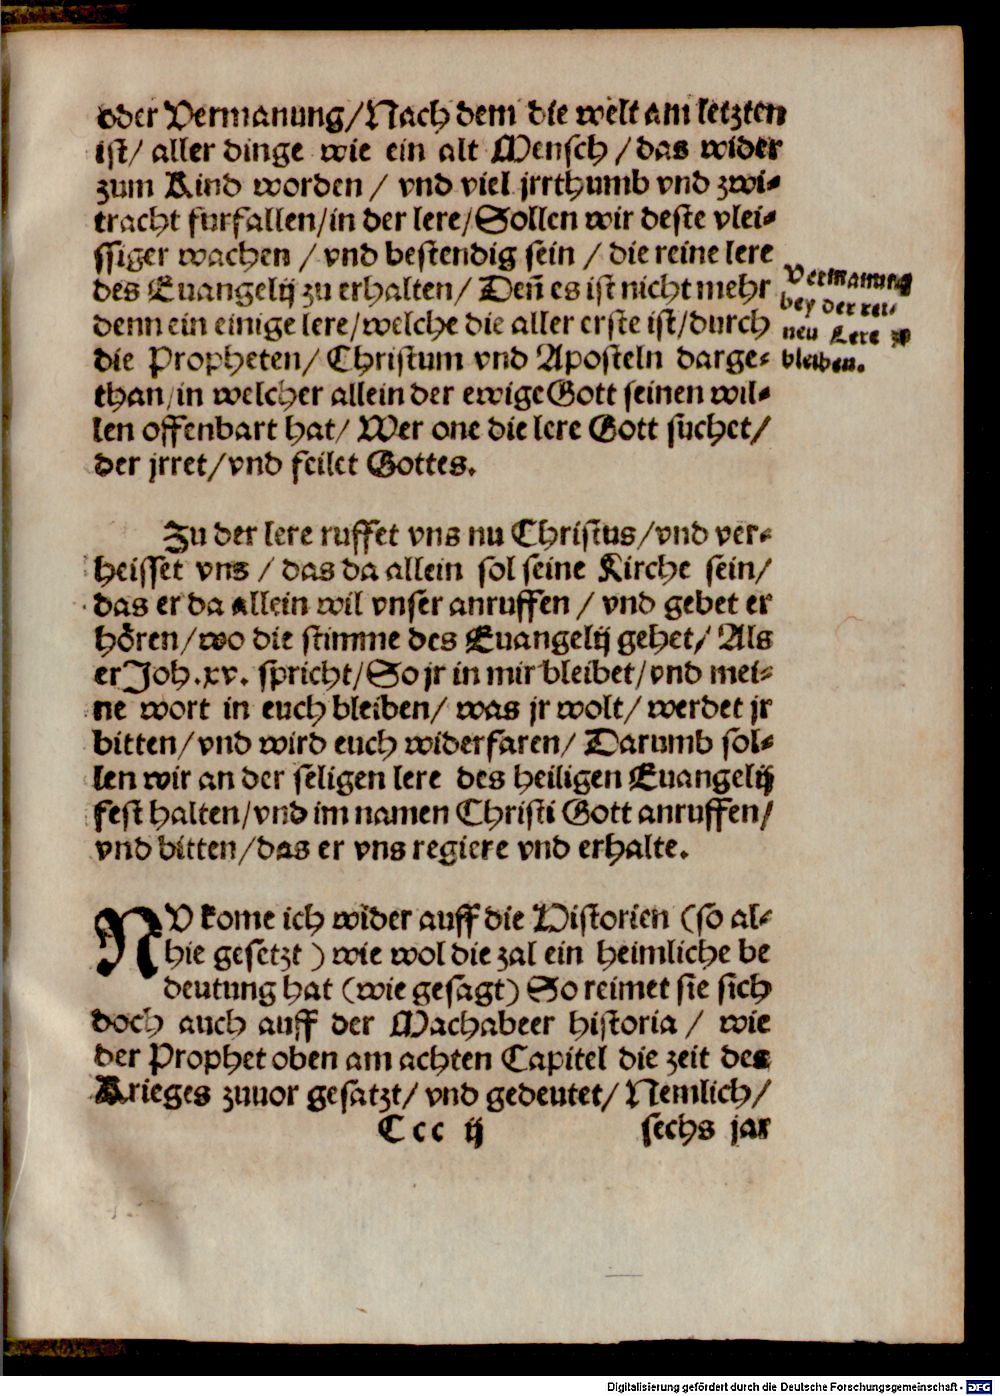 oder Vermanung/Nach dem die welt am letzten
ist/ aller dinge wie ein alt Mensch /das wider
zum Kind worden / vnd viel jrrthumb vnd zwi⸗
tracht furfallen/in der lere/Sollen wir deste vlei⸗
ssiger wachen / vnd bestendig sein / die reine lere
des Euangelij zu erhalten/ Deñ es ist nicht mehr
denn ein einige lere/welche die aller erste ist/durch
die Propheten/ Christum vnd Aposteln darge⸗
than/in welcher allein der ewige Gott seinen wil⸗
len offenbart hat/ Wer one die lere Gott suchet/
der jrret/vnd feilet Gottes.
Vermanung
bey der rei⸗
nen Lere zu
bleiben.
Zu der lere ruffet vns nu Christus/vnd ver⸗
heisset vns / das da allein sol seine Kirche sein/
das er da allein wil vnser anruffen / vnd gebet er
hören/wo die stimme des Euangelij gehet/ Als
er Joh.xv. spricht/So jr in mir bleibet/vnd mei⸗
ne wort in euch bleiben/ was jr wolt/ werdet jr
bitten/vnd wird euch widerfaren/ Darumb sol⸗
len wir an der seligen lere des heiligen Euangelij
fest halten/vnd im namen Christi Gott anruffen/
vnd bitten/das er vns regiere vnd erhalte.
NV kome ich wider auff die Historien (so al⸗
hie gesetzt ) wie wol die zal ein heimliche be
deutung hat (wie gesagt) So reimet sie sich
doch auch auff der Machabeer historia / wie
der Prophet oben am achten Capitel die zeit des
Krieges zuuor gesatzt/ vnd gedeutet/ Nemlich/
Ccc ij sechs jar
Digitalisierung gefördert durch die Deutsche Forschungsgemeinschaft - DFG